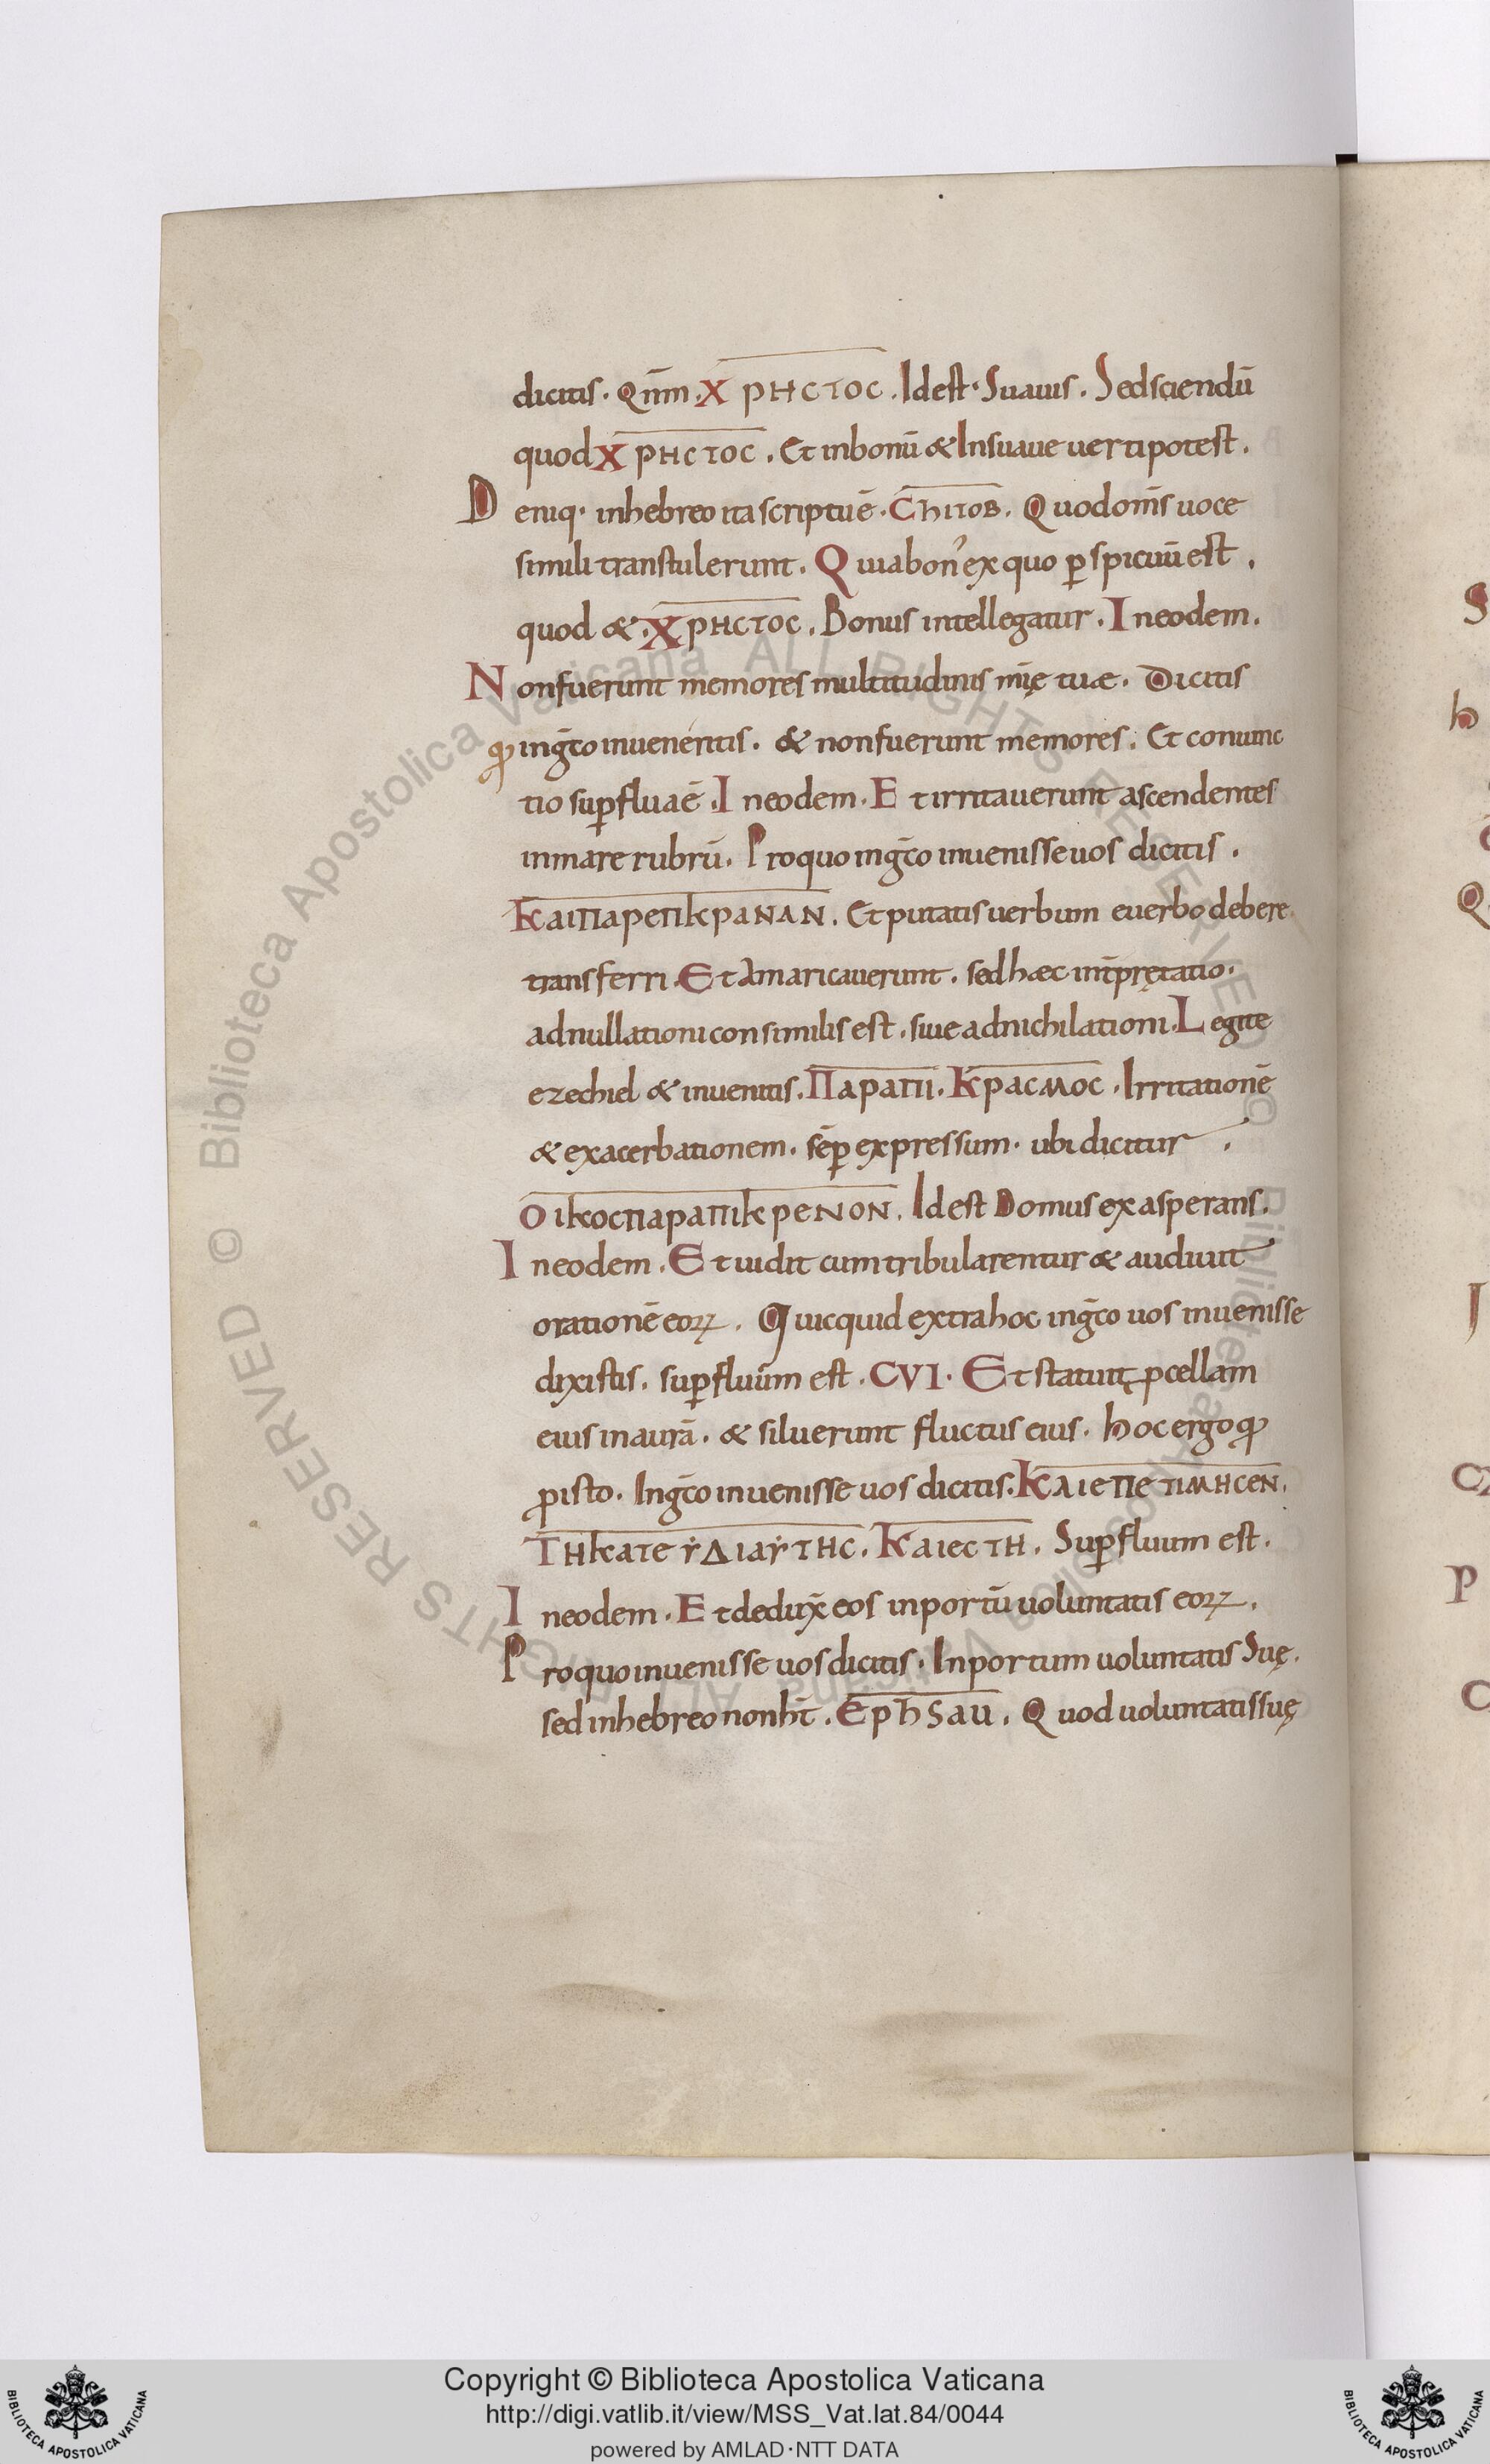 dicitis. Qnm̄. XPHCTOC. Id est. Suauis. Sed sciendū
quod XPHCTOC. Et in bonū & Insuaue uerti potest.
Deniq. in hebreo ita scriptū ē. Chitob. Quod om̄s uoce
simili transtulerunt. Quia bon' ex quo ꝑspicuū est.
quod &. XPHCTOC. Bonus intellegatur. In eodem.
Non fuerunt memores multitudinis mię tuæ. Dicitis
ꝙ in gc̄o inueneritis. & non fuerunt memores. Et coniunc
tio suꝑflua ē. In eodem. Et irritauerunt ascendentes
in mare rubrū. Pro quo in gc̄o inuenisse uos dicitis.
KAIΠAPEΠIKPANAN. Et putatis uerbum e uerbo debere
transferri. Et Amaricauerunt. sed hæc int̄prętatio.
adnullationi consimilis est. siue adnichilationi. Legite
ezechiel & inuenitis. ΠAPAΠI. KPACMOC. Irritationē
& exacerbationem. sēꝑ expressum. ubi dicitur.
OIKOCΠAPAΠIKPENON. Id est Domus exasperans.
In eodem. Et uidit cum tribularentur & audiuit
orationē eoꝝ. Quicquid extra hoc in gc̄o uos inuenisse
dixistis. suꝑfluūm est. CVI. Et statuit ꝓcellam
eius in aurā. & siluerunt fluctus eius. hoc ergo ꝙ
ꝓ isto. In gc̄o inuenisse uos dicitis. KAIEΠETIMHCEN.
THKATEYΔIAYTHC. KAIECTH. Suꝑfluum est.
In eodem. Et dedux̄ eos in portū uoluntatis eoꝝ.
Pro quo inuenisse uos dicitis. In portum uoluntatis Suę.
sed in hebreo non ht̄. Ephsau. Quod uoluntatis suę
Copyright © Biblioteca Apostolica Vaticana
http://digi.vatlib.it/view/MSS_Vat.lat.84/0044
powered by AMLAD·NTT DATA